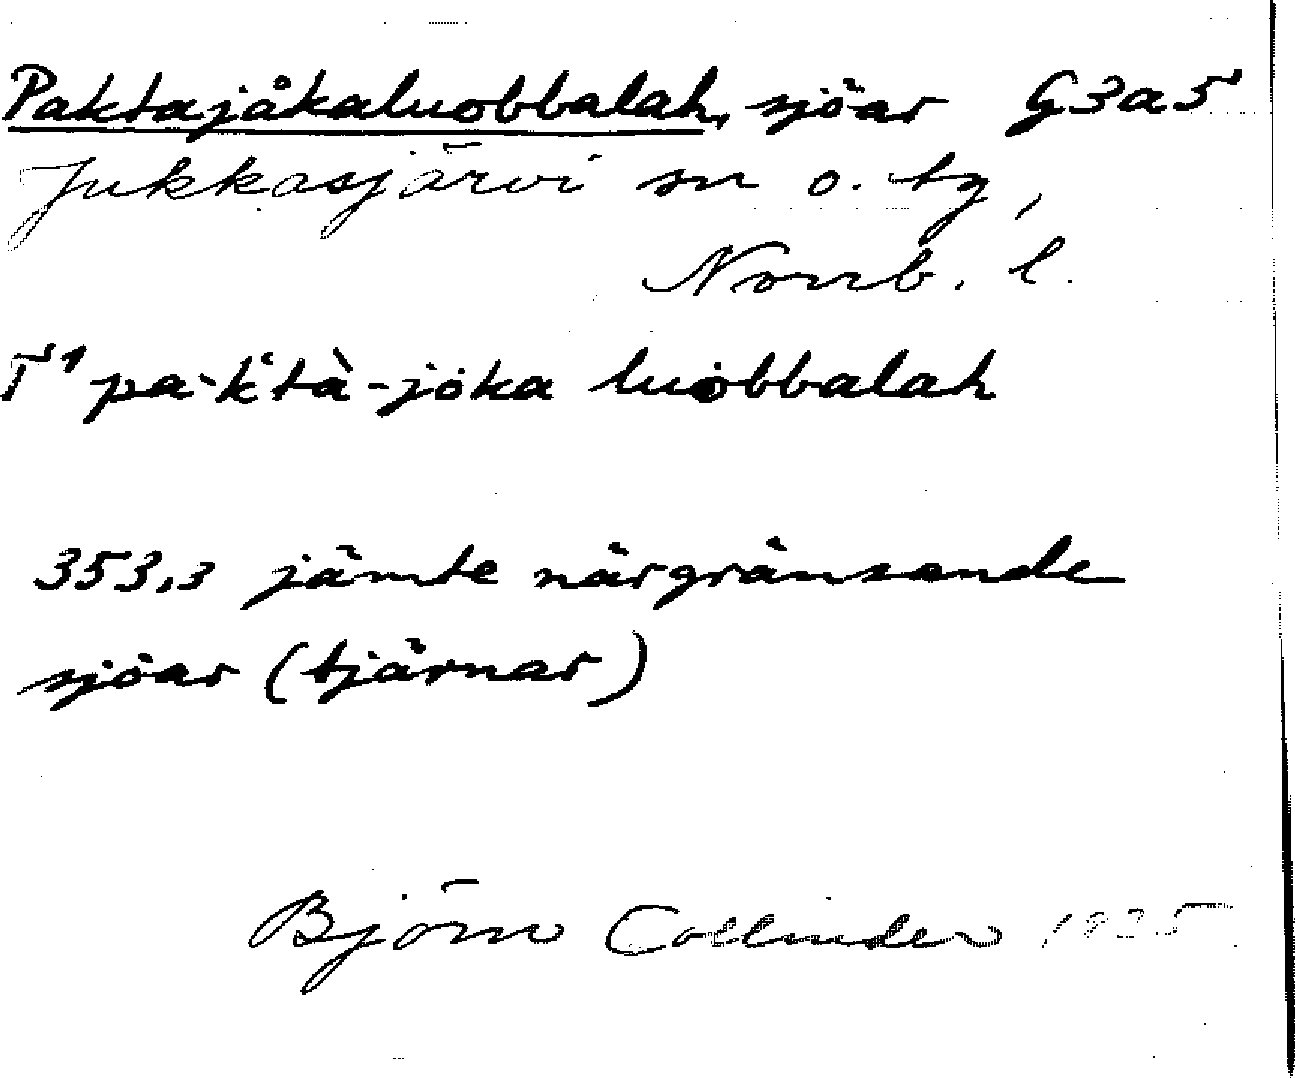 Paktajåkaluobbalah, sjöar G3a5
Jukkasjärvi sn o. tg,
Norrb. l.
T¹ pa·k'tà-jȯka luȯbbalah
353,3 jämte närgränsande
sjöar (tjärnar)
Björn Collinder 1935